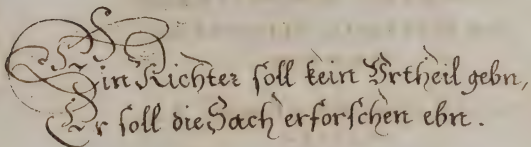 Ein Richter soll kein Vrtheil gebn,
Er soll die Sach erforschen ebn.